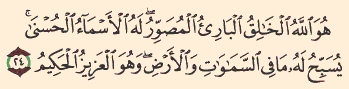 هُوَ ٱللَّهُ ٱلْخَٰلِقُ ٱلْبَارِئُ ٱلْمُصَوِّرُ ۖ لَهُ ٱلْأَسْمَآءُ ٱلْحُسْنَىٰ ۚ
يُسَبِّحُ لَهُۥ مَا فِى ٱلسَّمَٰوَٰتِ وَٱلْأَرْضِ ۖ وَهُوَ ٱلْعَزِيزُ ٱلْحَكِيمُ ٢٤